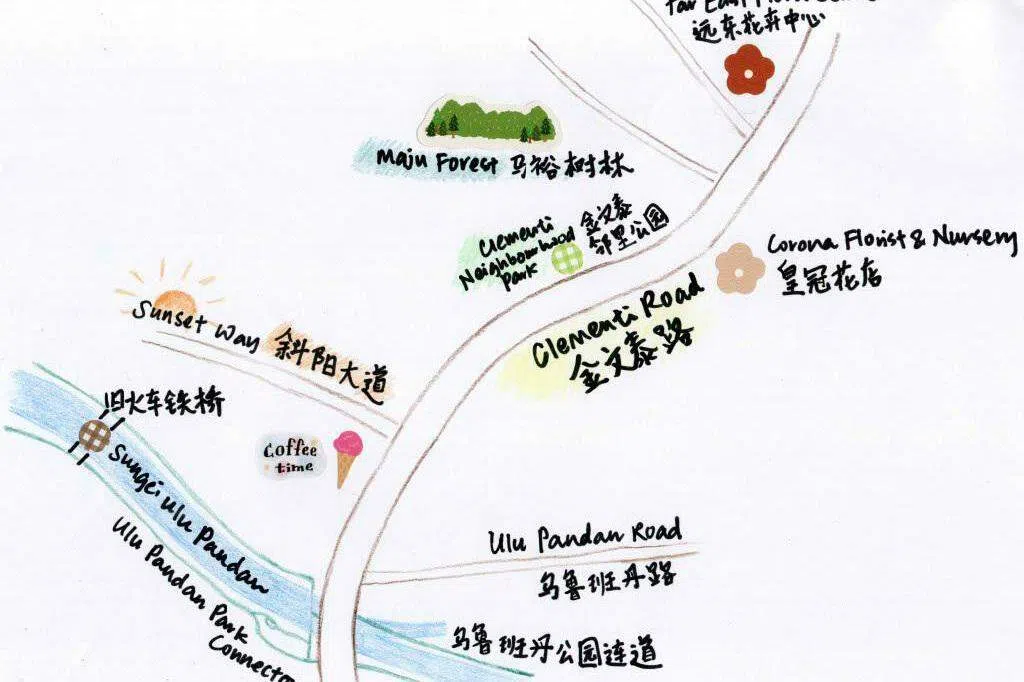 Far East Flora Centre
远东花卉中心
Maju Forest 马裕树林
Clementi
Neighbourhood
Park
金文泰
邻里公园
Corona Florist & Nursery
皇冠花店
Clementi Road
金文泰路
Sunset Way 斜阳大道
旧火车铁桥
Coffee
time
Sungei Ulu Pandan
Ulu Pandan Park
Connector
Ulu Pandan Road
乌鲁班丹路
乌鲁班丹公园连道